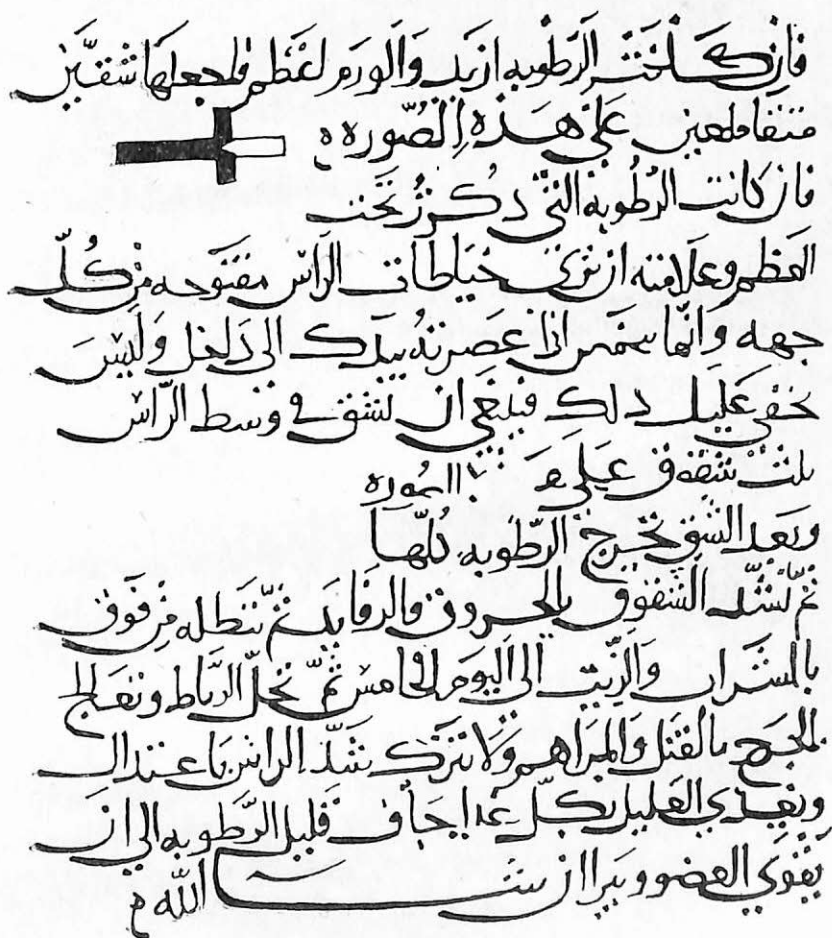 فان كانت الرطوبه ازيد والورم اعظم فاجعلها شقين
متقاطعين على هذه الصوره
فان كانت الرطوبة التي ذكرنا تحت
العظم وعلامته ان ترى خياطات الراس مفتوحه من كل
جهه والما ينغمس اذا عصرته بيدك الى داخل وليس
يخفى عليك ذلك فينبغي ان تشق في وسط الراس
ثلث شقوق على هذه الصوره
وبعد الشق تخرج الرطوبه كلها
ثم تشد الشقوق بالخروق والرفايد ثم تنطله من فوق
بالشراب والزيت الى اليوم الخامس ثم تحل الرباط وتعالج
الجرح بالفتل والمراهم ولا تترك شد الراس باعتدال
ويغذي العليل بكل غدا جاف قليل الرطوبه الى ان
يقوي العضو ويبرا ان شا الله